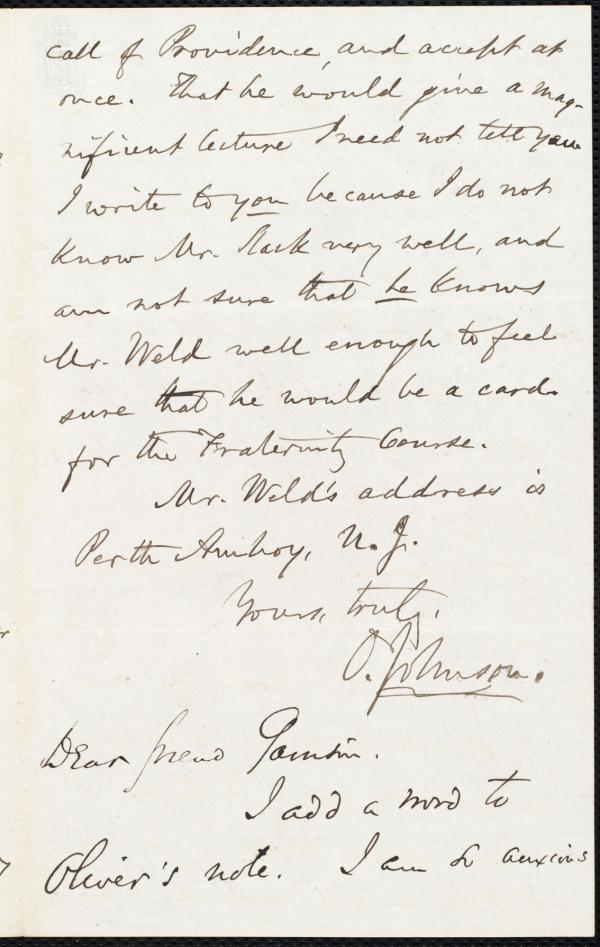 call of Providence, and accept at
once. That he would give a mag-
nificent lecture I need not tell you
I write to you because I do not
know Mr. Slack very well, and
am not sure that he knows
Mr. Weld well enough to feel
sure that he would be a card
for the Fraternity Course.
Mr. Weld's address is
Perth Amboy, N. J.
Yours, truly,
O. Johnson.
Dear friend
I add a word to
Oliver's note. I am so anxious